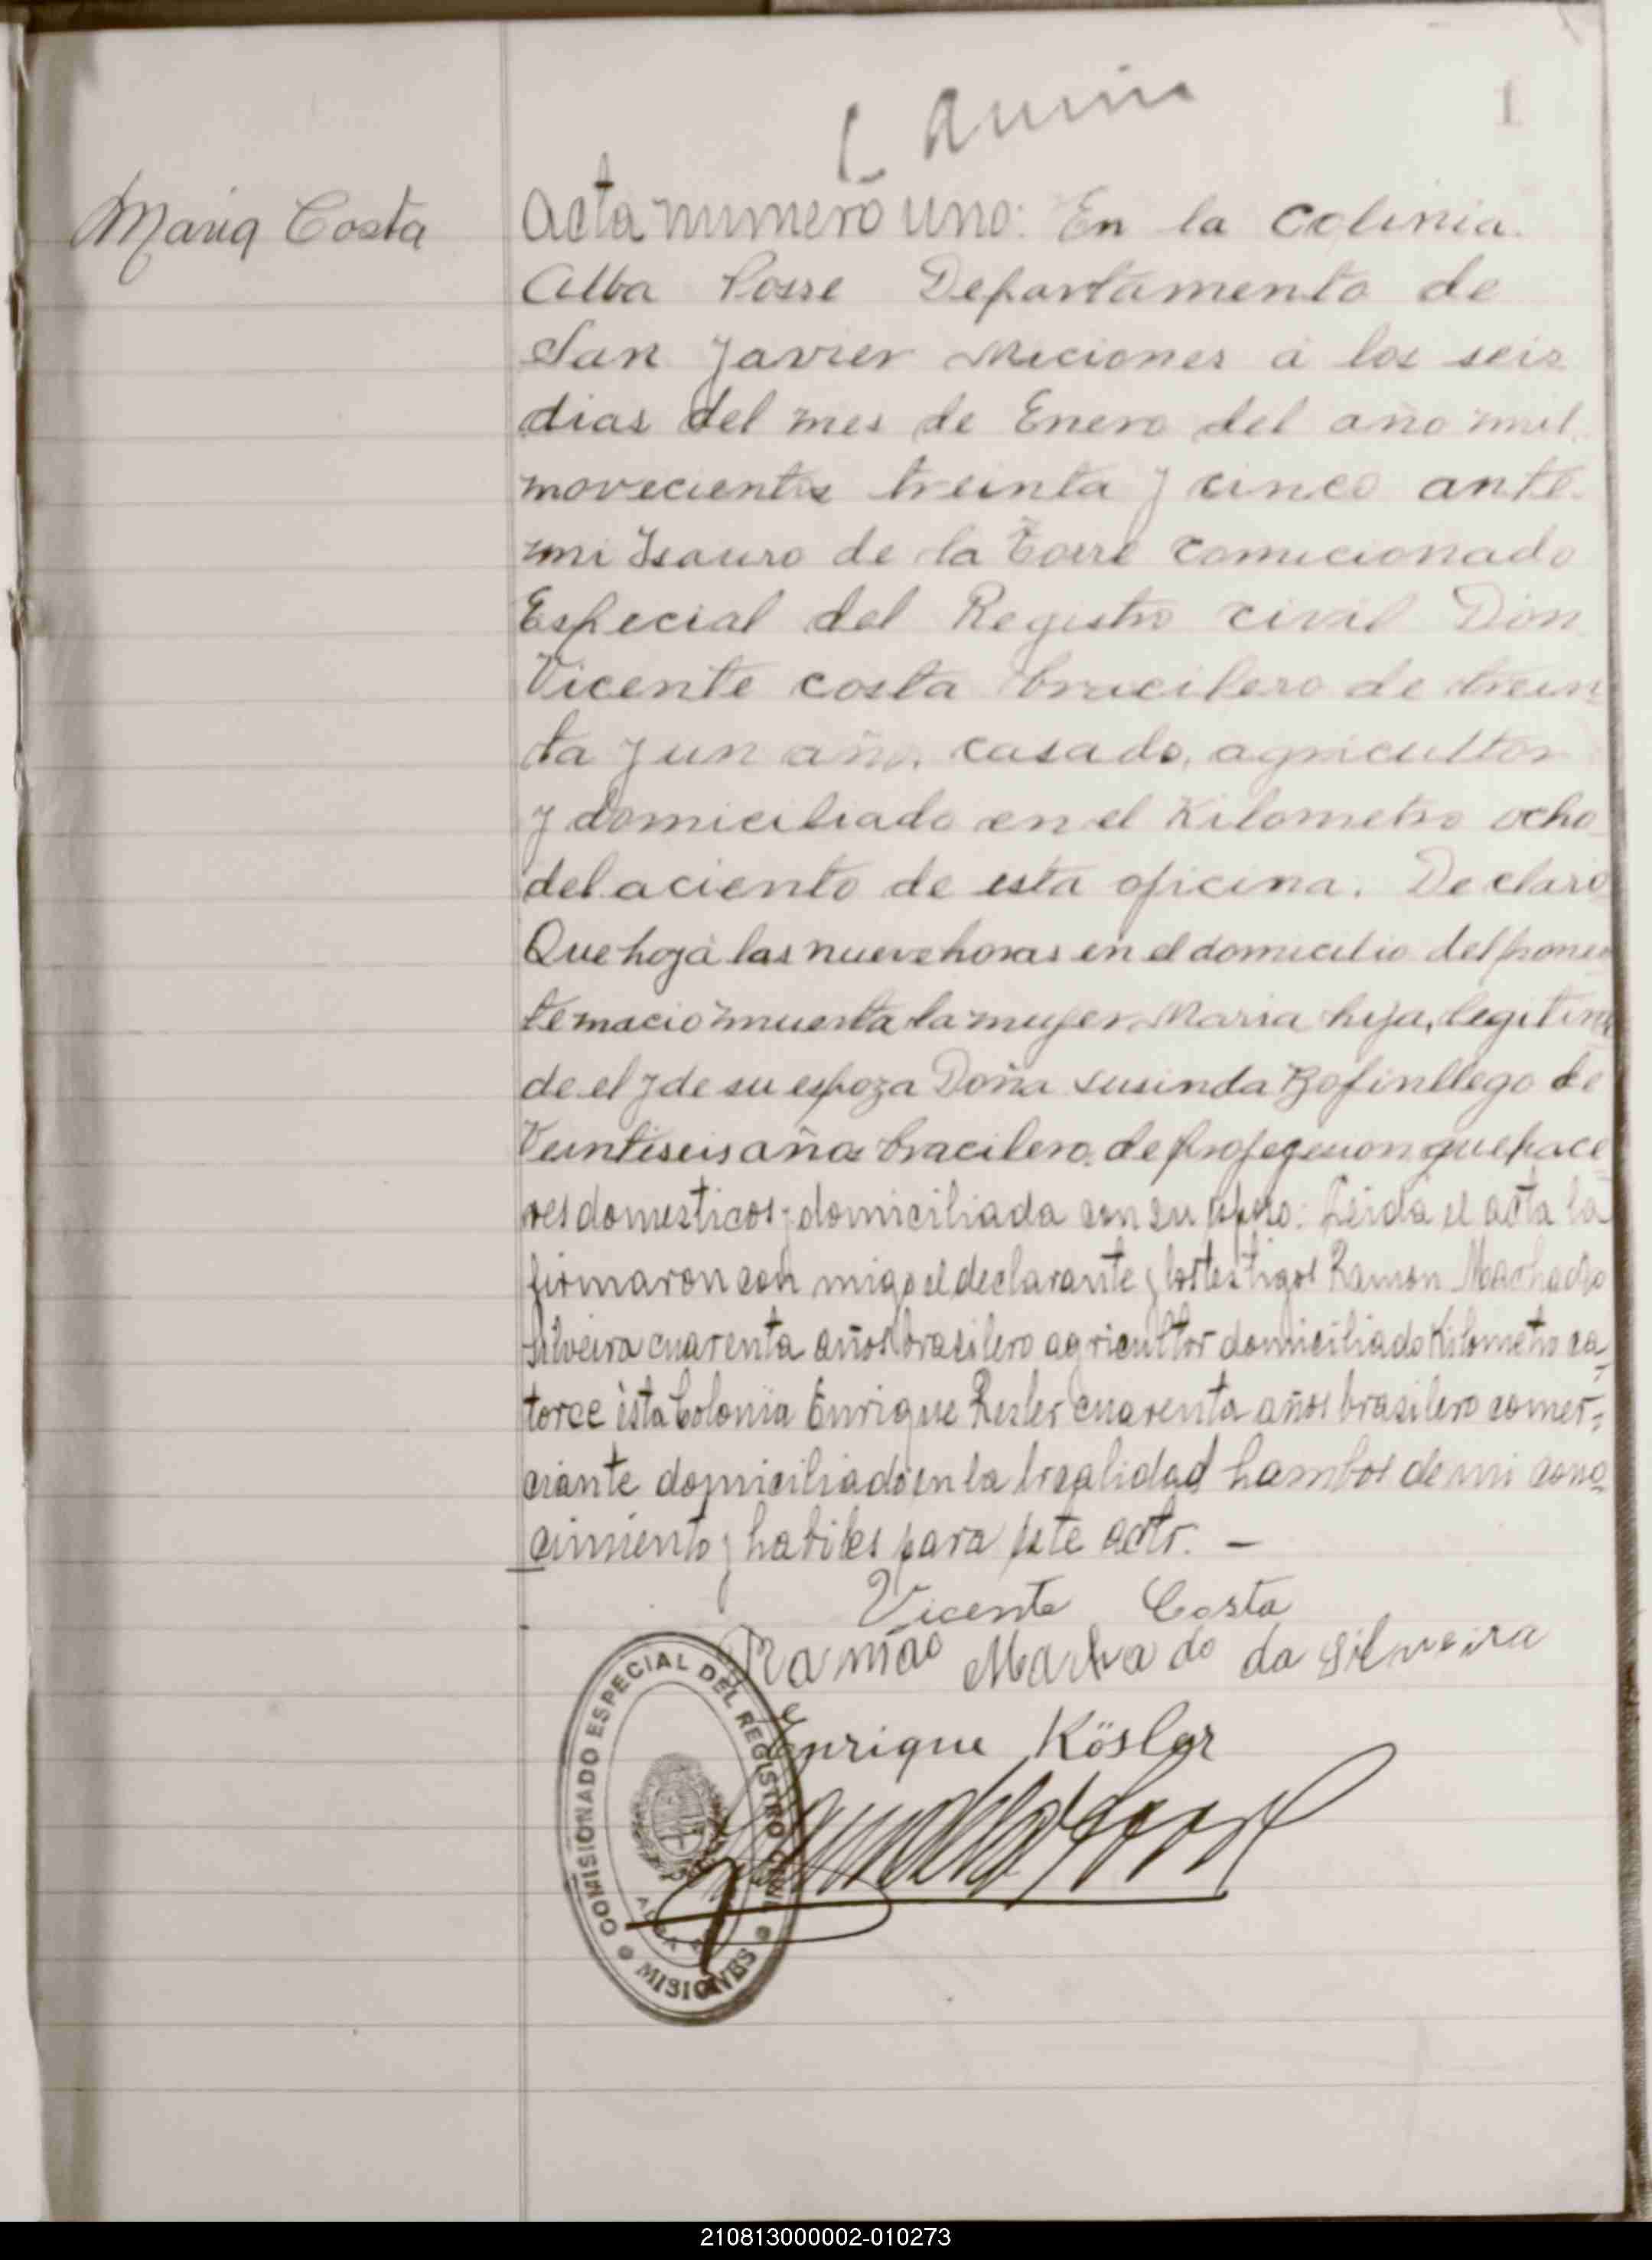 1
Maria Costa
Acta numero uno: En la colinia
Alba Posse Departamento de
San Javier Miciones a los seis
dias del mes de Enero del año mil
novecientos treinta y cinco ante
mi Isauro de la Torre comicionado
Especial del Registro civil Don
Vicente costa bracilero de trein
ta y un año, casado, agricultor
y domiciliado en el Kilometro ocho
del aciento de esta oficina. Declaro
Que hoy á las nueve horas en el domicilio del
te nacio muerta la mujer Maria hija, legitima
de el y de su espoza Doña
Veintiseis años bracilero, de quehace
res domesticos y domiciliada con su esposo: Leida el acta la
firmaron con migo el declarante y los testigos Ramon Machado
Silveira cuarenta años brasilero agricultor domiciliado Kilometro ca
torce ésta Colonia Enrique cuarenta años brasilero comer-
ciante domiciliado en la localidad hambos de mi cono
cimiento y habiles para este acto. —
Vicente Costa
Ramão Machado da Silveira
Enrique Kösler
COMISIONADO ESPECIAL DEL REGISTRO CIVIL
MISIONES
210813000002-010273